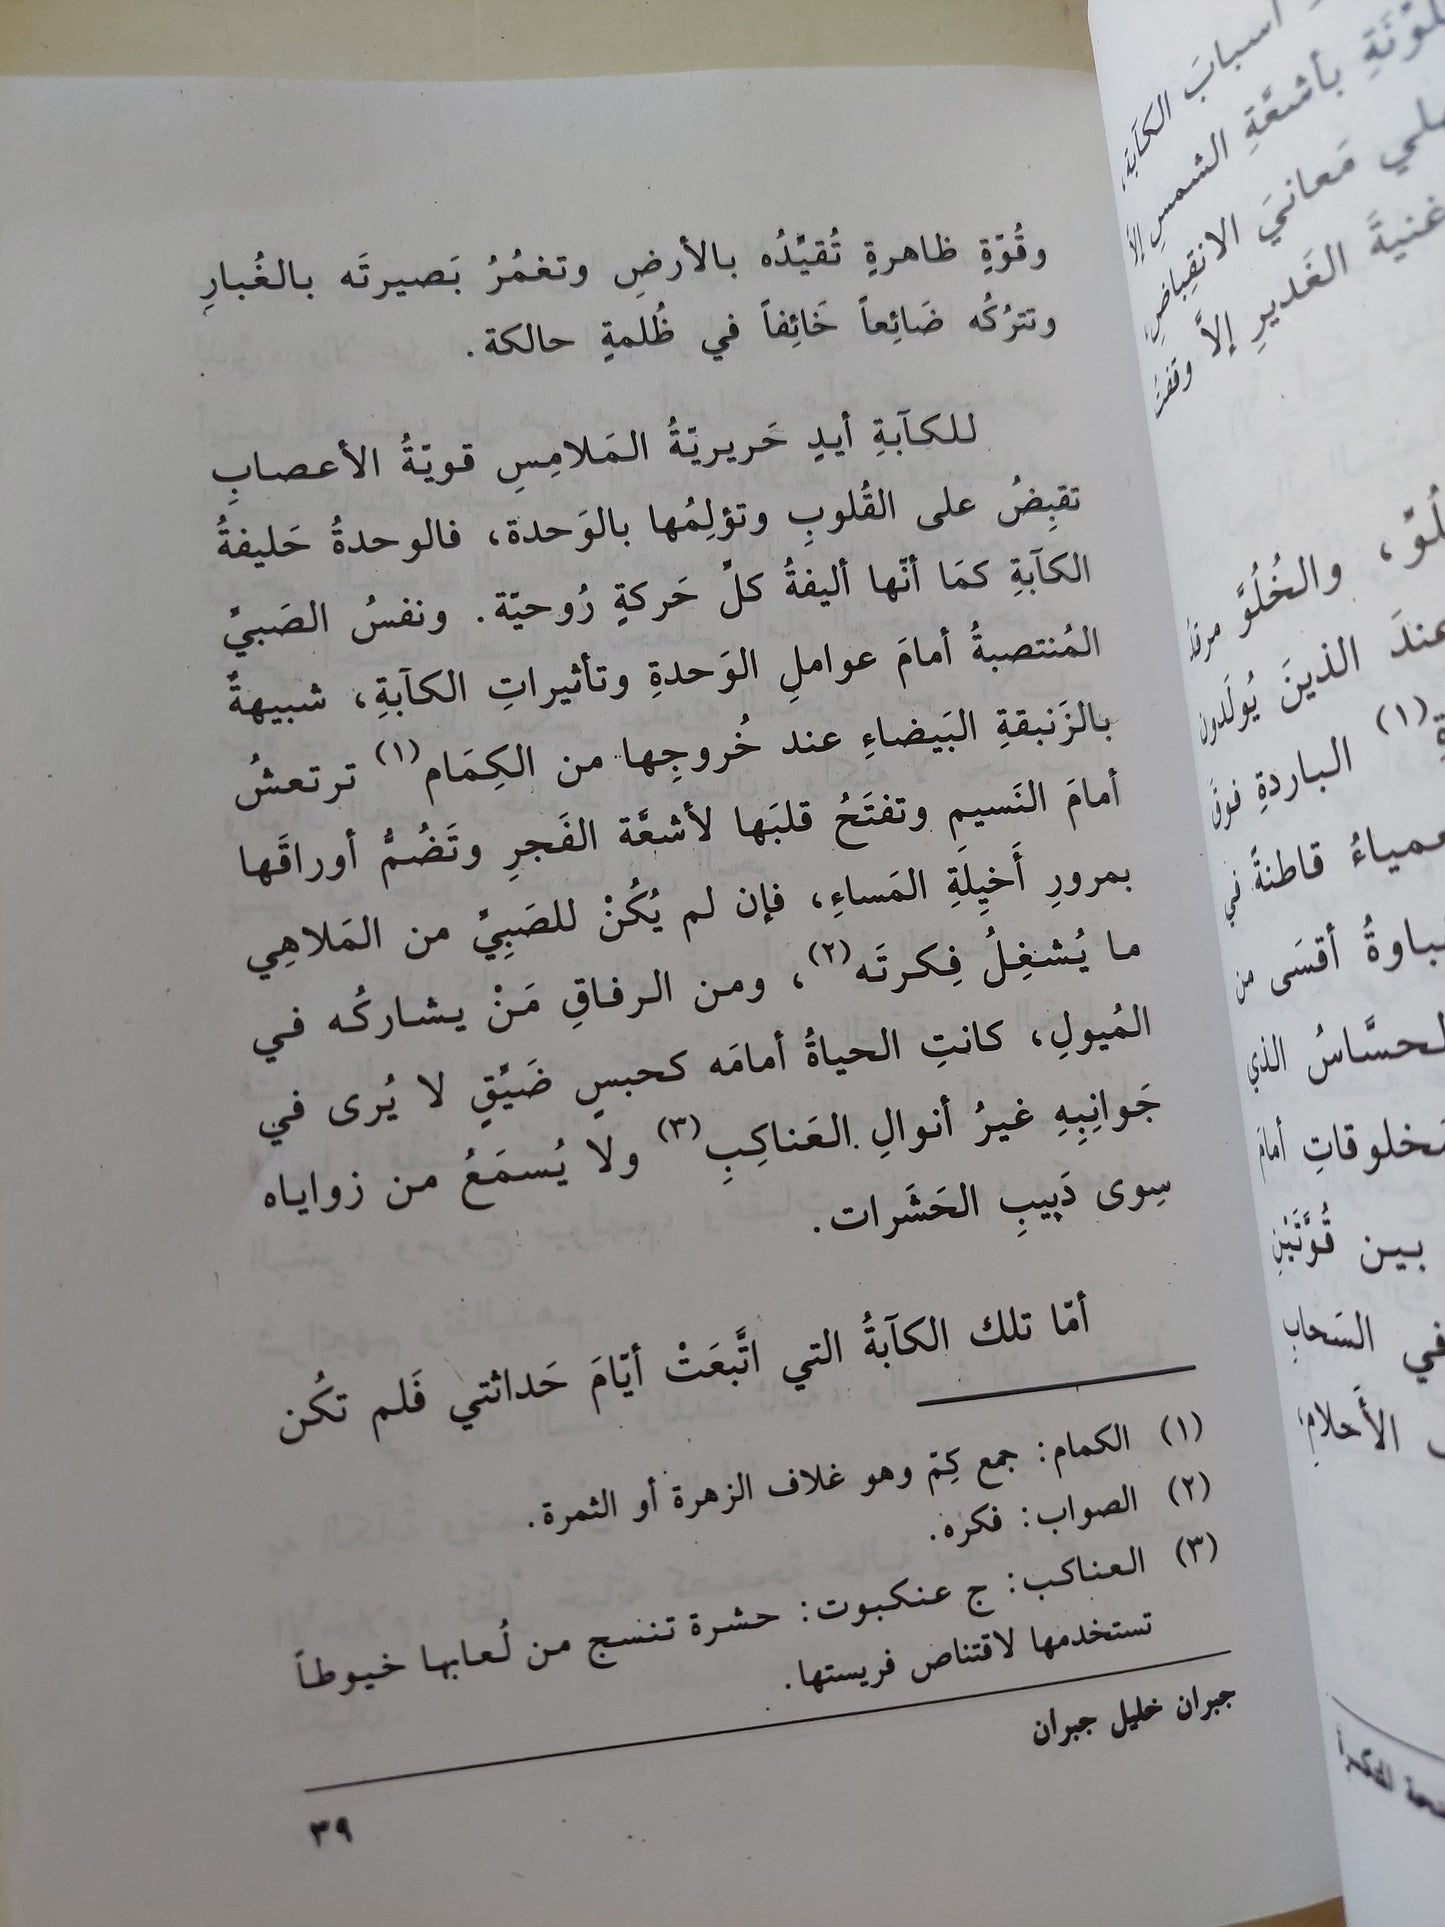 وقُوّةٍ ظاهرةٍ تُقيِّدُه بالأرضِ وتغمُرُ بَصيرتَه بالغُبارِ
وتترُكُه ضَائِعاً خَائِفاً في ظُلمةٍ حالكة.
للكآبةِ أيدٍ حَريريّةُ المَلامِسِ قويّةُ الأعصابِ
تقبِضُ على القُلوبِ وتؤلِمُها بالوَحدة، فالوحدةُ حَليفةُ
الكآبةِ كمَا أنّها أليفةُ كلِّ حَركةٍ رُوحيّة. ونفسُ الصَبيِّ
المُنتصبةُ أمامَ عواملِ الوَحدةِ وتأثيراتِ الكآبةِ، شبيهةٌ
بالزَنبقةِ البَيضاءِ عند خُروجِها من الكِمَام(١) ترتعشُ
أمامَ النَسيمِ وتفتَحُ قلبَها لأشعَّة الفَجرِ وتَضُمُّ أوراقَها
بمرورِ أَخيِلَةِ المَساءِ، فإن لم يُكُنْ للصَبِيِّ من المَلاهِي
ما يُشغِلُ فِكرتَه(٢)، ومن الرفاقِ مَنْ يشاركُه في
المُيولِ، كانتِ الحياةُ أمامَه كحبسٍ ضَيِّقٍ لا يُرى في
جَوانِبِهِ غيرُ أنوالِ العَناكِبِ(٣) ولا يُسمَعُ من زواياه
سِوى دَبِيبِ الحَشَرات.
أمّا تلك الكآبةُ التي اتَّبعَتْ أيّامَ حَداثتي فَلم تكُن
(١) الكمام: جمع كِمّ وهو غلاف الزهرة أو الثمرة.
(٢) الصواب: فكره.
(٣) العناكب: ج عنكبوت: حشرة تنسج من لُعابها خيوطاً
تستخدمها لاقتناص فريستها.
جبران خليل جبران
٣٩
أسبابَ الكآبَة،
بأشعَّةِ الشمسِ إلاَّ
مَعانيَ الانقِباضِ،
الغَديرِ إلاَّ وقفتُ
والخُلُوَّ مرقدُ
عندَ الذينَ يُولَدون
(١) الباردةِ فوقَ
قاطنةً في
أقسَى من
الذي
أمامَ
بين قُوَّتَيْنِ
في السَحابِ
الأَحلامِ،